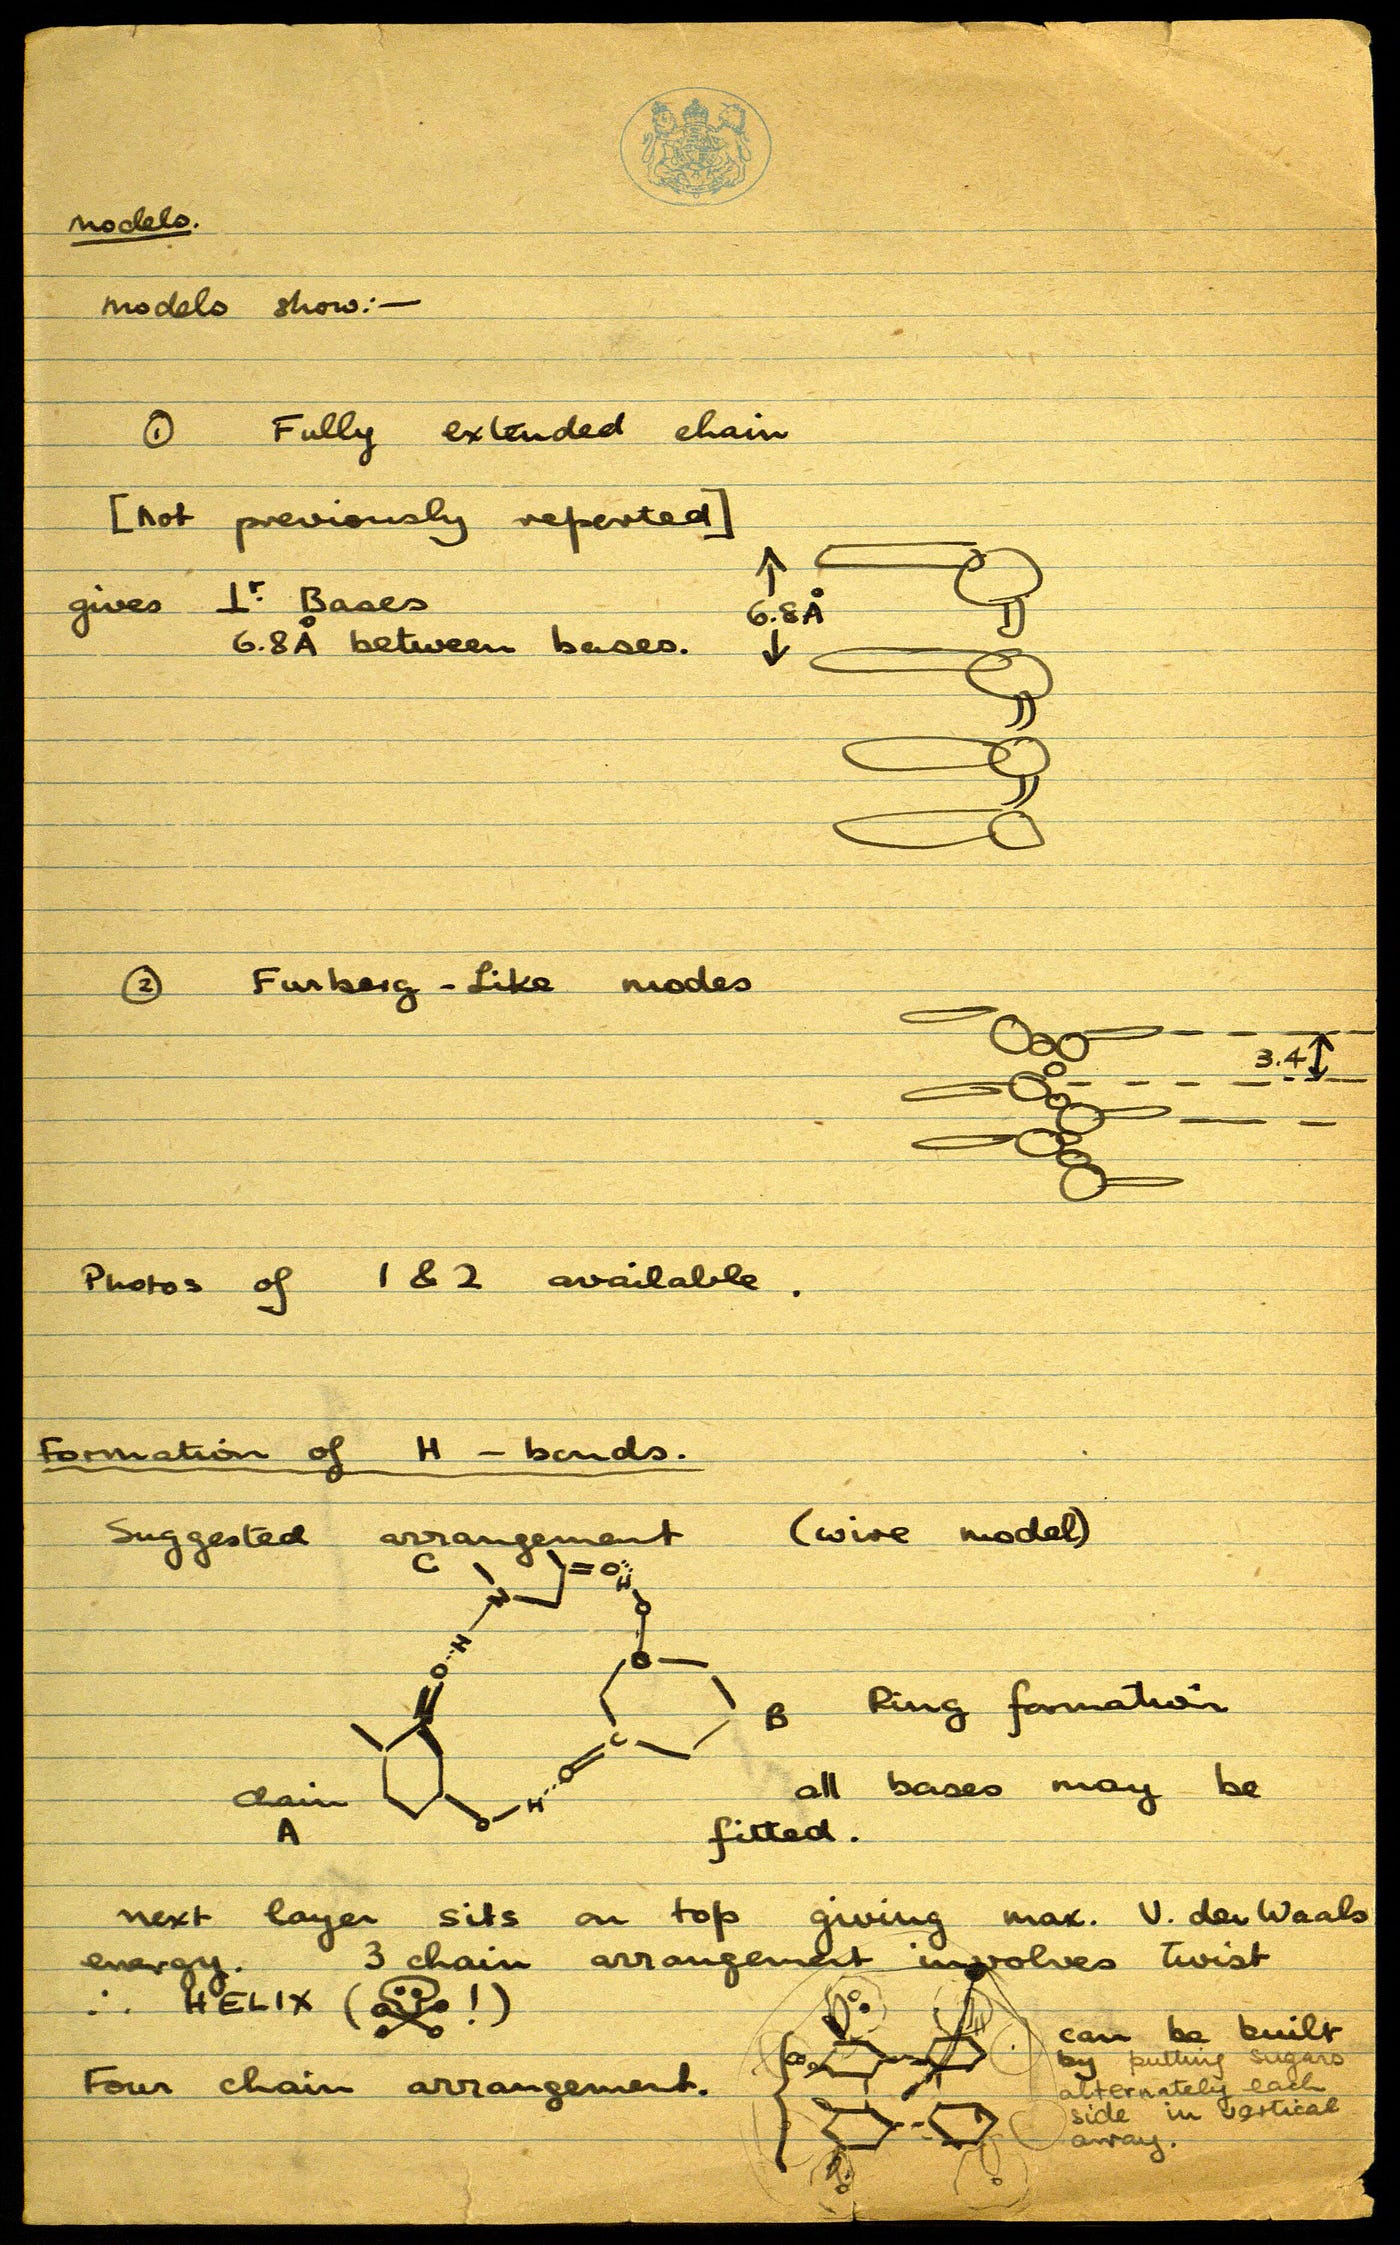 Models.
Models show:—
① Fully extended chain
[Not previously reported]
gives ⊥r. Bases
6.8Å between bases.
6.8Å
② Furberg-Like modes
3.4
Photos of 1 & 2 available.
Formation of H-bonds.
Suggested arrangement (wire model)
C
=O
H
N
O
H
O
B
Ring formation
C
O
H
O
chain
A
all bases may be
fitted.
next layer sits on top giving max. V. der Waals
energy. 3 chain arrangement involves twist
∴ HELIX ( !)
Four chain arrangement.
can be built
by putting sugars
alternately each
side in vertical
away.